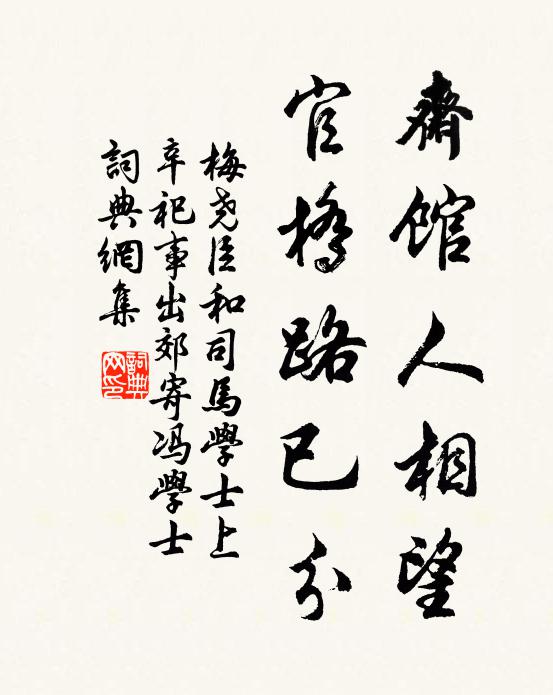 齋館人相望
官橋路已分
梅堯臣和司馬學士上
辛祀事出郊寄馮學士
詞典網集
詞典网印